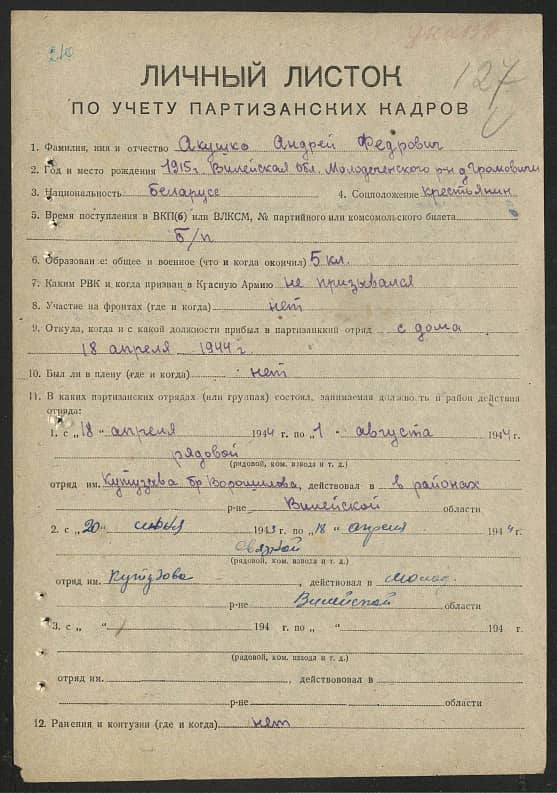 210
127
ЛИЧНЫЙ ЛИСТОК
ПО УЧЕТУ ПАРТИЗАНСКИХ КАДРОВ
1. Фамилия, имя и отчество Акушко Андрей Федрович
2. Год и место рождения 1915г. Вилейская обл. Молодеченского р-н д Громовичи
3. Национальность Беларусс 4. Соцположение крестьянин
5. Время поступления в ВКП(б) или ВЛКСМ, № партийного или комсомольского билета
б/п
6. Образован е: общее и военное (что и когда окончил) 5 кл.
7. Каким РВК и когда призван в Красную Армию не призывался
8. Участие на фронтах (где и когда) нет
9. Откуда, когда и с какой должности прибыл в партизанккий отряд с дома
18 апреля 1944 г.
10. Был ли в плену (где и когда) нет
11. В каких партизанских отрядах (или группах) состоял, занимаемая должно ть и район действия
отряда:
1. с „18" апреля 1944 г. по „1" августа 1944 г.
рядовой
(рядовой, ком. взвода и т. д.)
отряд им. Кутузова бр Ворошилова, действовал в в районах
р-не Вилейской области
2. с „20" 1943 г. по „18" апреля 1944 г.
связной
(рядовой, ком. взвода и т. д.)
отряд им. Кутузова, действовал в Молод.
р-не Вилейской области
3. с „ " 194 г. по „ " 194 г.
(рядовой, ком. взвода и т. д.)
отряд им. , действововал в
р-не области
12. Ранения и контузии (где и когда) нет